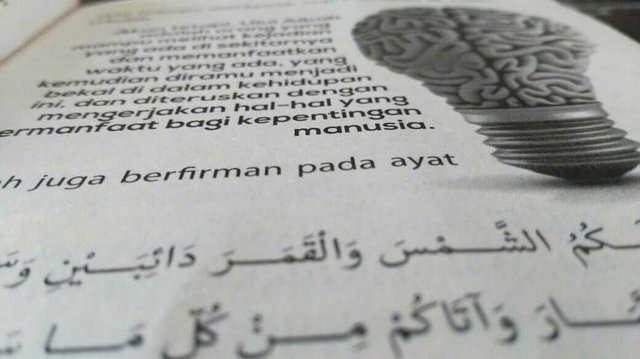 Akan tetapi, Ulul Albab
orang yang
mampu melihat kejadian
yang ada di sekitarnya
dan memanfaatkan
waktu yang ada, yang
kemudian diramu menjadi
bekal di dalam kehidupan
ini, dan diteruskan dengan
mengerjakan hal-hal yang
ermanfaat bagi kepentingan
manusia.
h juga berfirman pada ayat
كُمُ الشَّمْسَ وَالْقَمَرَ دَائِبَيْنِ وَسَ
ارَ وَآتَاكُمْ مِنْ كُلِّ مَا